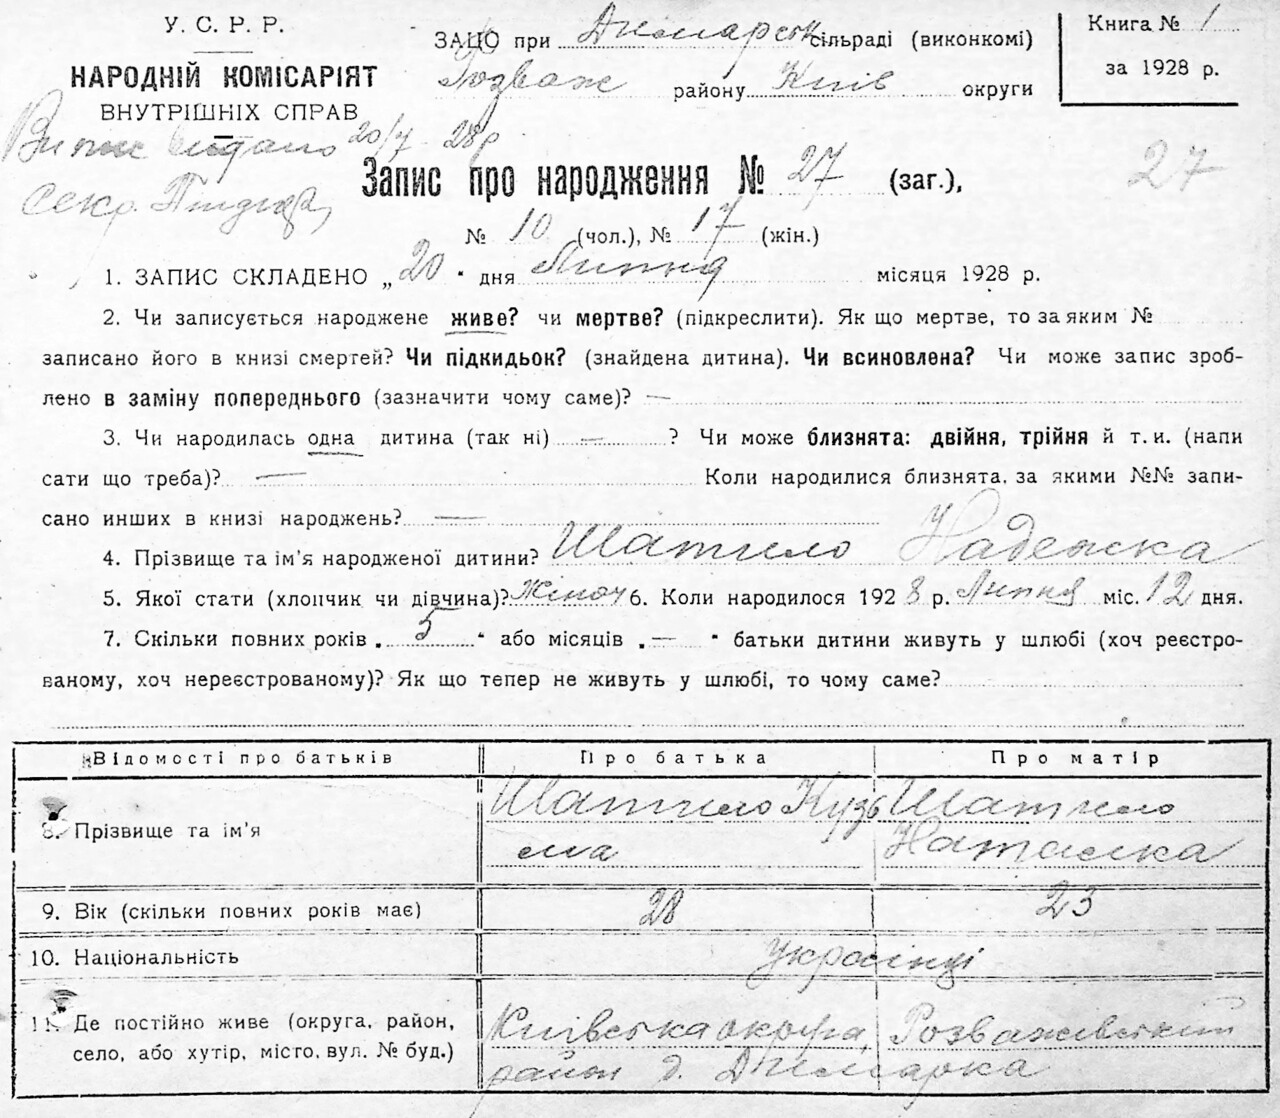 У. С. Р. Р.
НАРОДНІЙ КОМІСАРІЯТ
ВНУТРІШНІХ СПРАВ
ЗАЦС при Димарськ сільраді (виконкомі)
Розваж району Київ округи
Книга № 1
за 1928 р.
Випис видано 20/7 28р
секр.
Запис про народження № 27 (заг.),
27
№ 10 (чол.), № 17 (жін.)
1. ЗАПИС СКЛАДЕНО „ 20 " дня Липня місяця 1928 р.
2. Чи записується народжене живе? чи мертве? (підкреслити). Як що мертве, то за яким №
записано його в книзі смертей? Чи підкидьок? (знайдена дитина). Чи всиновлена? Чи може запис зроб-
лено в заміну попереднього (зазначити чому саме)? —
3. Чи народилась одна дитина (так ні) — ? Чи може близнята: двійня, трійня й т. и. (напи
сати що треба)? — Коли народилися близнята, за якими №№ запи-
сано инших в книзі народжень? —
4. Прізвище та ім'я народженої дитини? Шатило Надежка
5. Якої стати (хлопчик чи дівчина)? Жіноч 6. Коли народилося 1928 р. Липня міс. 12 дня.
7. Скільки повних років „ 5 " або місяців „ — " батьки дитини живуть у шлюбі (хоч реєстро-
ваному, хоч нереєстрованому)? Як що тепер не живуть у шлюбі, то чому саме?
Відомості про батьків Про батька Про матір
8. Прізвище та ім'я Шатило Кузь Шатило
ма Наталка
9. Вік (скільки повних років має) 28 23
10. Національність Українці
11. Де постійно живе (округа, район, Київська округа, Розважівський
село, або хутір, місто, вул. № буд.) район д. Димарка